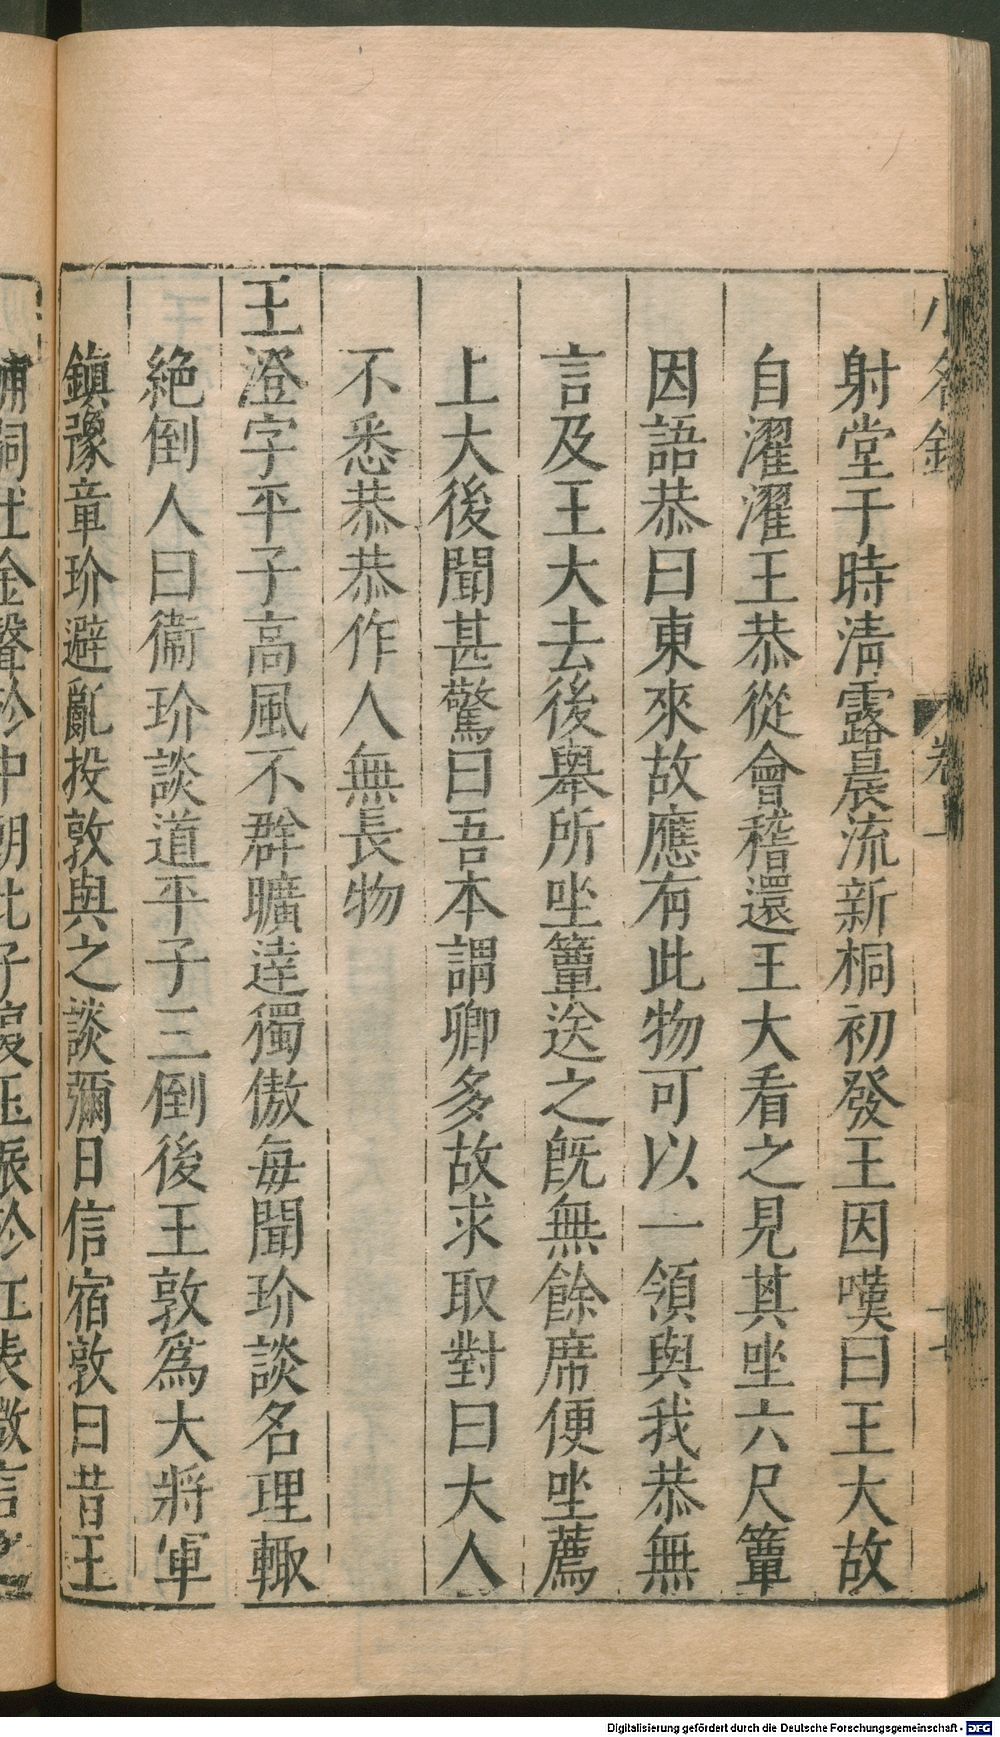 小名錄 卷一 十七
射堂于時清露晨流新桐初發王因嘆曰王大故
自濯濯王恭從會稽還王大看之見其坐六尺簟
因語恭曰東來故應有此物可以一領與我恭無
言及王大去後舉所坐簟送之旣無餘席便坐薦
上大後聞甚驚曰吾本謂卿多故求取對曰大人
不悉恭恭作人無長物
王澄字平子高風不群曠達獨傲每聞玠談名理輙
絕倒人曰衞玠談道平子三倒後王敦爲大將軍
鎮豫章玠避亂投敦與之談彌日信宿敦曰昔王
輔嗣吐金聲於中朝此子復玉振於江表微言之
Digitalisierung gefördert durch die Deutsche Forschungsgemeinschaft - DFG